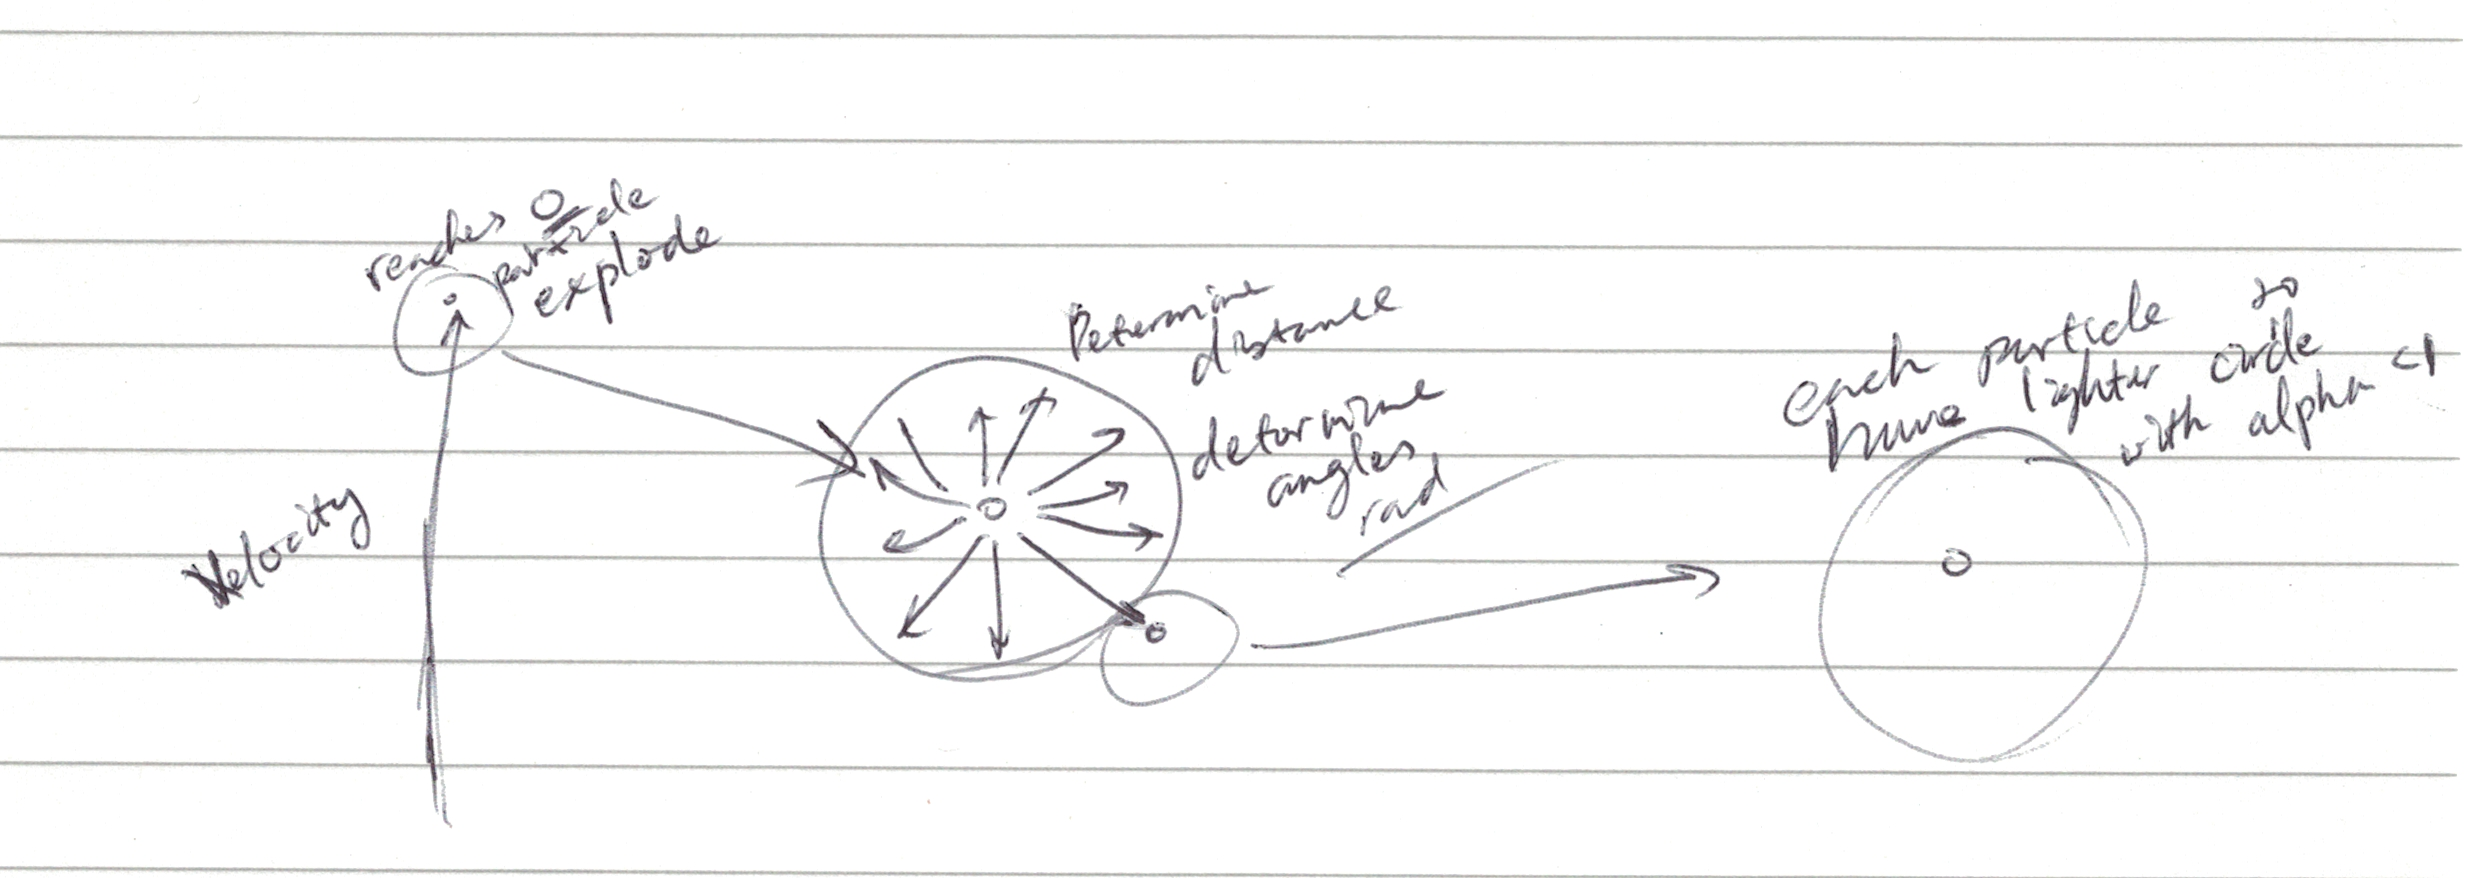 reaches 0
particle
explode
Velocity
Determine
distance
determine
angles
rad
each particle
have lighter circle
with alpha <1